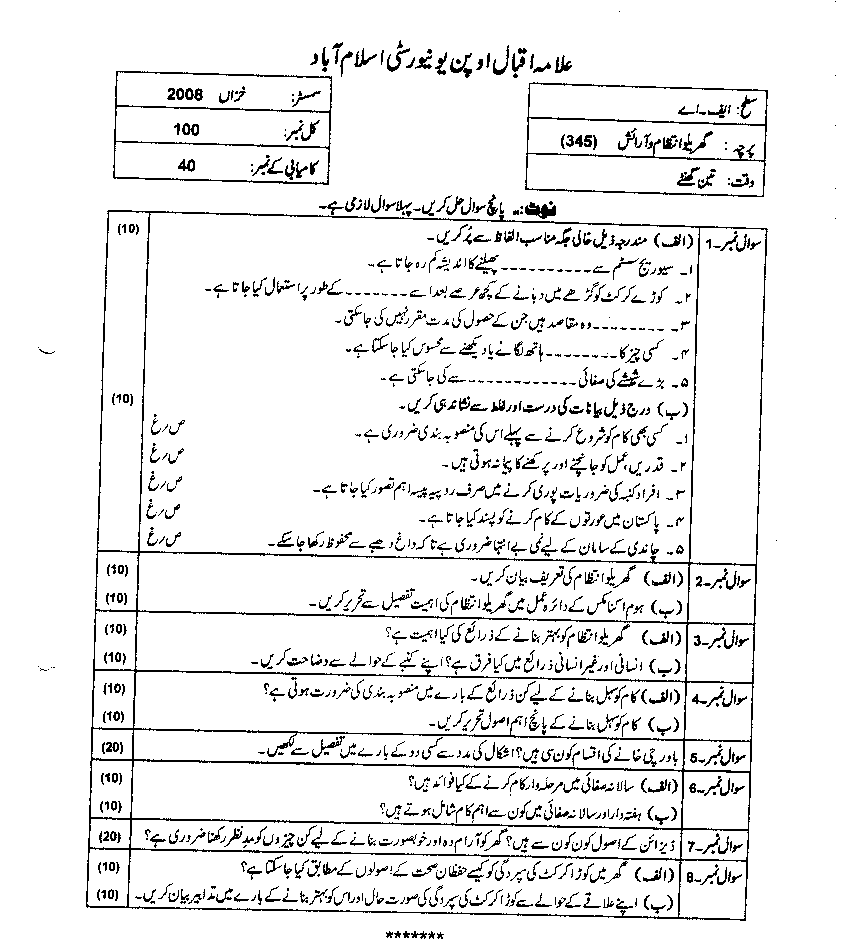 علامہ اقبال اوپن یونیورسٹی اسلام آباد
سطح: ایف۔اے
پرچہ: گھریلو انتظام و آرائش (345)
وقت: تین گھنٹے
سمسٹر: خزاں 2008
کل نمبر: 100
کامیابی کے نمبر: 40
نوٹ:۔ پانچ سوال حل کریں۔ پہلا سوال لازمی ہے۔
سوال نمبر۔1 (الف) مندرجہ ذیل خالی جگہ مناسب الفاظ سے پُر کریں۔ (10)
۱۔ سیوریج سسٹم سے ---------- پھیلنے کا اندیشہ کم رہ جاتا ہے۔
۲۔ کوڑے کرکٹ کو گڑھے میں دبانے کے کچھ عرصے بعد اسے ------- کے طور پر استعمال کیا جاتا ہے۔
۳۔ -------- وہ مقاصد ہیں جن کے حصول کی مدت مقرر نہیں کی جا سکتی۔
۴۔ کسی چیز کا -------- ہاتھ لگانے یا دیکھنے سے محسوس کیا جا سکتا ہے۔
۵۔ بڑے شیشے کی صفائی ------------ سے کی جا سکتی ہے۔
(ب) درج ذیل بیانات کی درست اور غلط سے نشاندہی کریں۔ (10)
۱۔ کسی بھی کام کو شروع کرنے سے پہلے اس کی منصوبہ بندی ضروری ہے۔ ص/غ
۲۔ قدریں عمل کو جانچنے اور پرکھنے کا پیمانہ ہوتی ہیں۔ ص/غ
۳۔ افراد کنبہ کی ضروریات پوری کرنے میں صرف روپیہ پیسہ اہم تصور کیا جاتا ہے۔ ص/غ
۴۔ پاکستان میں عورتوں کے کام کرنے کو پسند کیا جاتا ہے۔ ص/غ
۵۔ چاندی کے سامان کے لیے نمی بے انتہا ضروری ہے تاکہ داغ دھبے سے محفوظ رکھا جا سکے۔ ص/غ
سوال نمبر۔2 (الف) گھریلو انتظام کی تعریف بیان کریں۔ (10)
(ب) ہوم اکنامکس کے دائرہ عمل میں گھریلو انتظام کی اہمیت تفصیل سے تحریر کریں۔ (10)
سوال نمبر۔3 (الف) گھریلو انتظام کو بہتر بنانے کے ذرائع کی کیا اہمیت ہے؟ (10)
(ب) انسانی اور غیر انسانی ذرائع میں کیا فرق ہے؟ اپنے کنبے کے حوالے سے وضاحت کریں۔ (10)
سوال نمبر۔4 (الف) کام کو سہل بنانے کے لیے کن ذرائع کے بارے میں منصوبہ بندی کی ضرورت ہوتی ہے؟ (10)
(ب) کام کو سہل بنانے کے پانچ اہم اصول تحریر کریں۔ (10)
سوال نمبر۔5 باورچی خانے کی اقسام کون سی ہیں؟ اشکال کی مدد سے کسی دو کے بارے میں تفصیل سے لکھیں۔ (20)
سوال نمبر۔6 (الف) سالانہ صفائی میں مرحلہ وار کام کرنے کے کیا فوائد ہیں؟ (10)
(ب) ہفتہ دار اور سالانہ صفائی میں کون سے اہم کام شامل ہوتے ہیں؟ (10)
سوال نمبر۔7 ڈیزائن کے اصول کون کون سے ہیں؟ گھر کو آرام دہ اور خوبصورت بنانے کے لیے کن چیزوں کو مدنظر رکھنا ضروری ہے؟ (20)
سوال نمبر۔8 (الف) گھر میں کوڑا کرکٹ کی سپردگی کو کیسے حفظان صحت کے اصولوں کے مطابق کیا جا سکتا ہے؟ (10)
(ب) اپنے علاقے کے حوالے سے کوڑا کرکٹ کی سپردگی کی صورت حال اور اس کو بہتر بنانے کے بارے میں تدابیر بیان کریں۔ (10)
*******